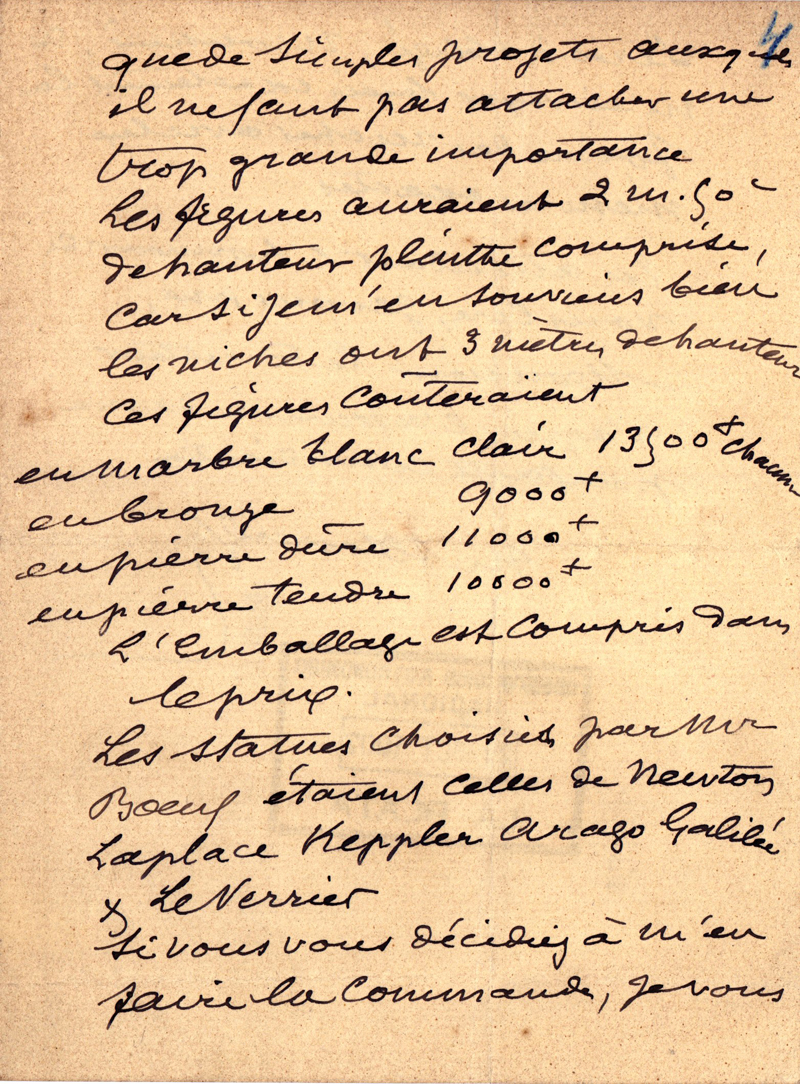 4
que de simples projets auxquels
il ne faut pas attacher une
trop grande importance
Les figures auraient 2 m. 50 c
de hauteur plinthe comprise,
car si je m'en souviens bien
les niches ont 3 mètres de hauteur
Ces figures coûteraient
en marbre blanc clair 13500 f chacune
en bronze 9000 f
en pierre dure 11000 f
en pierre tendre 10000 f
L'Emballage est compris dans
le prix.
Les statues choisies par Mr
Boeuf étaient celles de Newton
Laplace Keppler Arago Galilée
& Le Verrier
Si vous vous décidiez à m'en
faire la commande, je vous